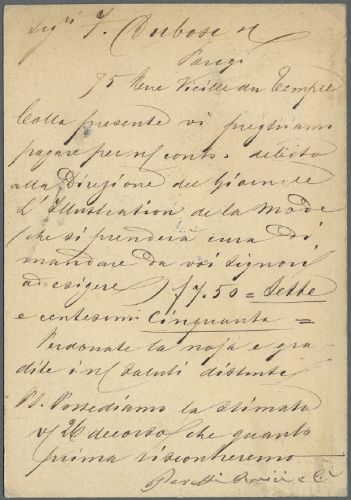 Sigri F. Dubosc &
Parigi
75 Rue Vieille du Temple
Colla presente vi preghiamo
pagare per n/ conto e debito
alla Direzione del Giornale
L'Illustration de la Mode
(che si prenderà cura di
mandare da voi Signori
ad esigere) f 7.50 = Sette
e centesimi Cinquanta =
Perdonate la noja e gra-
dite i n/ saluti distinti
PS. Possediamo la stimata
v/ 26 decorso che quanto
prima riscontreremo